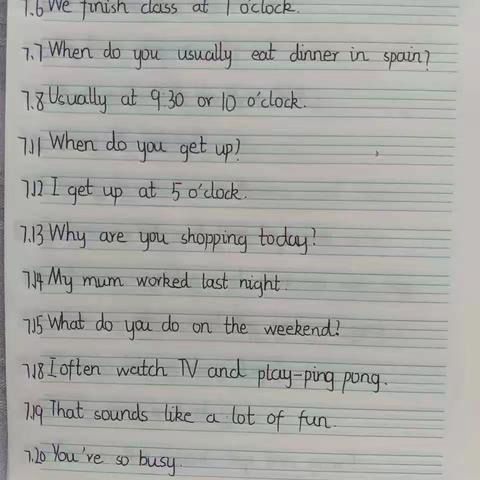 7.6 We finish class at 1 o'clock.
7.7 When do you usually eat dinner in spain?
7.8 Usually at 9:30 or 10 o'clock.
7.11 When do you get up?
7.12 I get up at 5 o'clock.
7.13 Why are you shopping today?
7.14 My mum worked last night.
7.15 What do you do on the weekend?
7.18 I often watch TV and play-ping pong.
7.19 That sounds like a lot of fun.
7.20 You're so busy.